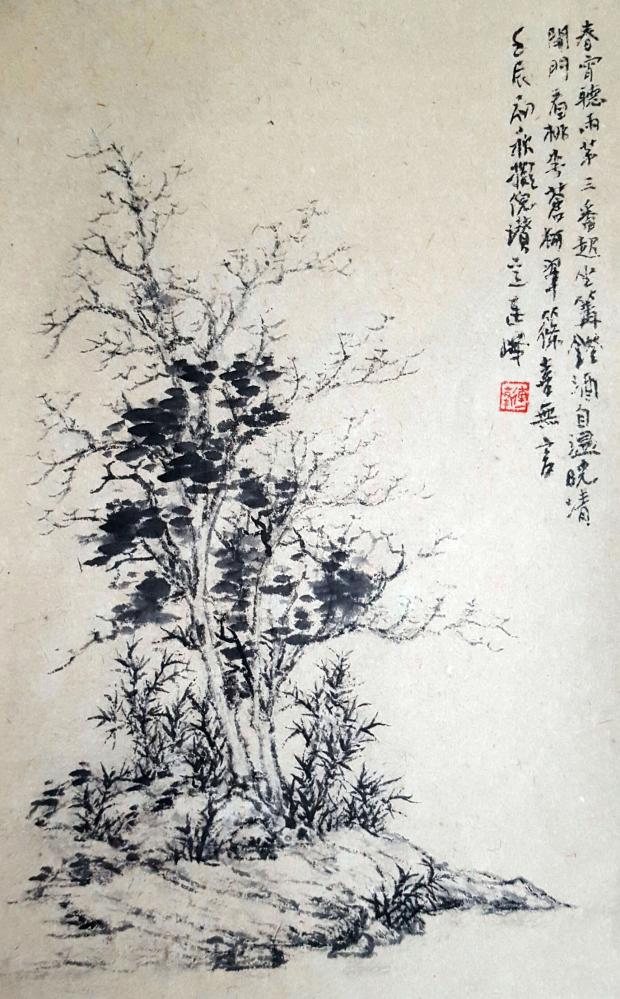 春宵聽雨第三番起坐篝鐙酒自溫曉清
開門看桃李蒼梧翠篠喜無言
壬辰初秋擬倪瓚意連峰